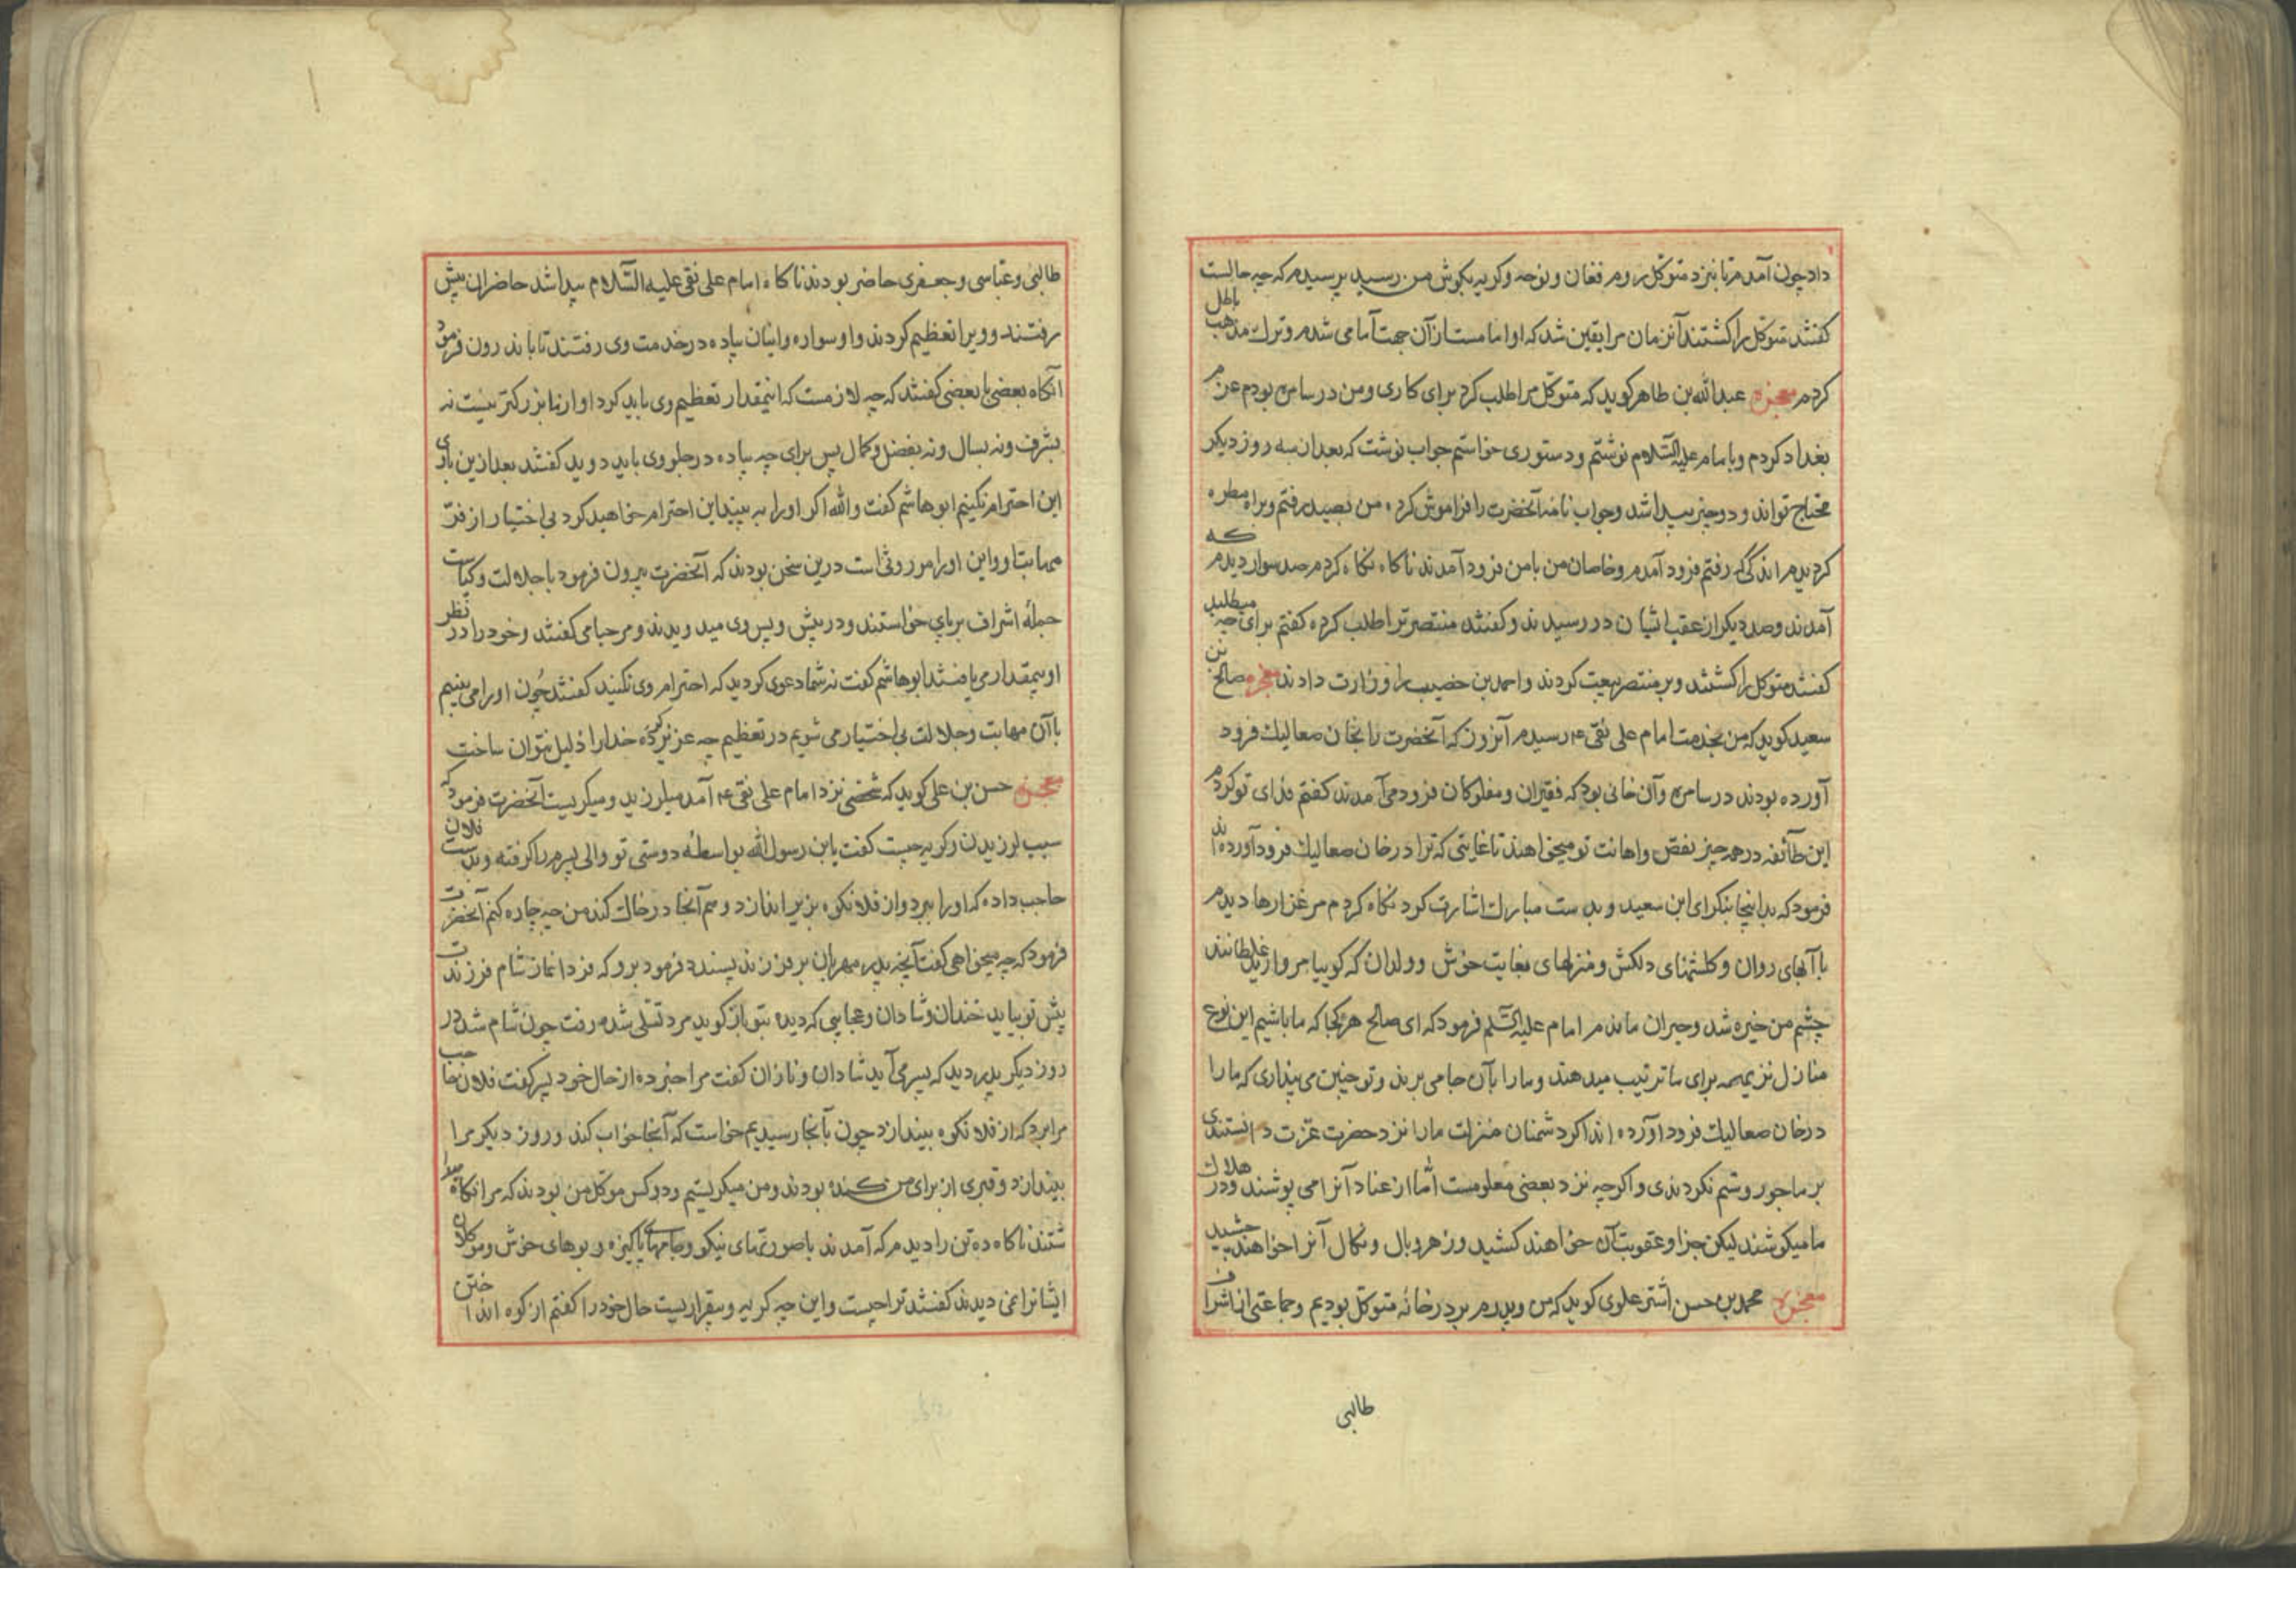 داد چون آمدم تا نزد متوکل روم فغان و نوحه و کریه بکوش من رسید پرسیدم که چه حالست
کفتند متوکل را کشتند آنزمان مرا یقین شد که او امامست از آن جهت آمامی شدم و ترک مذهب باطل
کردم معجزه عبدالله بن طاهر کوید که متوکل مرا طلب کرد برای کاری و من در سامره بودم عزم
بغداد کردم و بامام علیه السّلام نوشتم و دستوری خواستم جواب نوشت که بعد از سه روز دیکر
محتاج تواند و دو چیز پیدا شد و جواب نامه آنحضرت را فراموش کرده من بصید رفتم و براه مطره
کردیدم اندکی که رفتم فرود آمدم و خاصان من با من فرود آمدند ناکاه نکاه کردم صد سوار دیدم که
آمدند و صد دیکر از عقب ایشان در رسیدند و کفتند منتصر ترا طلب کرده کفتم برای چه میطلبد
کفتند متوکل را کشتند و بر منتصر بیعت کردند و احمد بن خضیب را وزارت دادند معجزه صالح بن
سعید کوید که من بخدمت امام علی نقی ع رسیدم آنروز که آنحضرت را بخان صعالیک فرود
آورده بودند در سامره و آن خانی بود که فقیران و مفلوکان فرود می آمدند کفتم فدای تو کردم
این طائفه در همه چیز نقص و اهانت تو میخواهند تا غایتی که ترا در خان صعالیک فرود آورده اند
فرمود که بداینجا بنکر ای ابن سعید و بدست مبارک اشارت کرد نکاه کردم مرغزارها دیدم
با آبهای روان و کلشنهای دلکش و منزلهای بغایت خوش و ولدان که کوییا مروارید غلطانند
چشم من خیره شد و حیران ماندم امام علیه السّلم فرمود که ای صالح هر کجا که ما باشیم این نوع
منازل نزیهه برای ما ترتیب میدهند و ما را بآن جا می برند و تو چنین می پنداری که ما را
در خان صعالیک فرود آورده اند اکر دشمنان منزلت ما را نزد حضرت عزّت دانستندی
بر ما جور و ستم نکردندی و اکر چه نزد بعضی معلومست امّا از عناد آنرا می پوشند و در هلاک
ما میکوشند لیکن جزا و عقوبت آن خواهند کشید و زهر وبال و نکال آنرا خواهند چشید
معجزه محمد بن حسن اشتر علوی کوید که من و پدرم بر در خانه متوکل بودیم و جماعتی از اشراف
طالبی
طالبی و عبّاسی و جعفری حاضر بودند ناکاه امام علی نقی علیه السّلام پیدا شد حاضران پیش
رفتند و ویرا تعظیم کردند و او سواره و اینان پیاده در خدمت وی رفتند تا باندرون فرمود
آنکاه بعضی با بعضی کفتند که چه لازمست که اینمقدار تعظیم وی باید کرد او از ما بزرکتر نیست نه
بشرف و نه بسال و نه بفضل و کمال پس برای چه پیاده در جلو وی باید دوید کفتند بعد ازین باری
این احترام نکنیم ابو هاشم کفت والله اکر او را به بینید این احترام خواهید کرد بی اختیار از فرّ
مهابت او و این او را موروثی است درین سخن بودند که آنحضرت بیرون فرمود با جلالت و کیاست
جمله اشراف برپای خواستند و در پیش و پس وی میدویدند و مرحبا می کفتند و خود را در نظر
او بیمقدار می یافتند ابو هاشم کفت نه شما دعوی کردید که احترام وی نکنید کفتند چُون او را می بینیم
با آن مهابت و جلالت بی اختیار می شویم در تعظیم چه عزیز کرده خدا را ذلیل نتوان ساخت
معجزه حسن بن علی کوید که شخصی نزد امام علی نقی ع آمد میلرزید و میکریست آنحضرت فرمود که
سبب لرزیدن و کریه چیست کفت یابن رسول الله بواسطه دوستی تو والی پسرم را کرفته و بدست فلان
حاجب داده که او را ببرد و از فلانکوه بزیر اندازد و هم آنجا در خاک کند من چه چاره کنم آنحضرت
فرمود که چه میخواهی کفت آنچه پدر مهربان بر فرزند پسندد فرمود برو که فردا نماز شام فرزندت
پیش تو بیاید خندان و شادان و عجایبی که دیده بتو باز کوید مرد تسلی شده رفت چون شام شد در
روز دیکر پدر دید که پسر می آید شادان و نازان کفت مرا خبر ده از حال خود پسر کفت فلان حاجب
مرا برد که از فلانکوه بیندازد چون بآنجا رسیدیم خواست که آنجا خواب کند و روز دیکر مرا
بیندازد و قبری از برای من کنده بودند و من میکریستم و دو کس موکل من بودند که مرا نکاه میدا
شتند ناکاه ده تن را دیدم که آمدند با صورتهای نیکو و جامهای پاکیزه و بوهای خوش و موکلان
ایشانرا نمی دیدند کفتند ترا چیست و این چه کریه و بیقراریست حال خود را کفتم از کوه انداختن